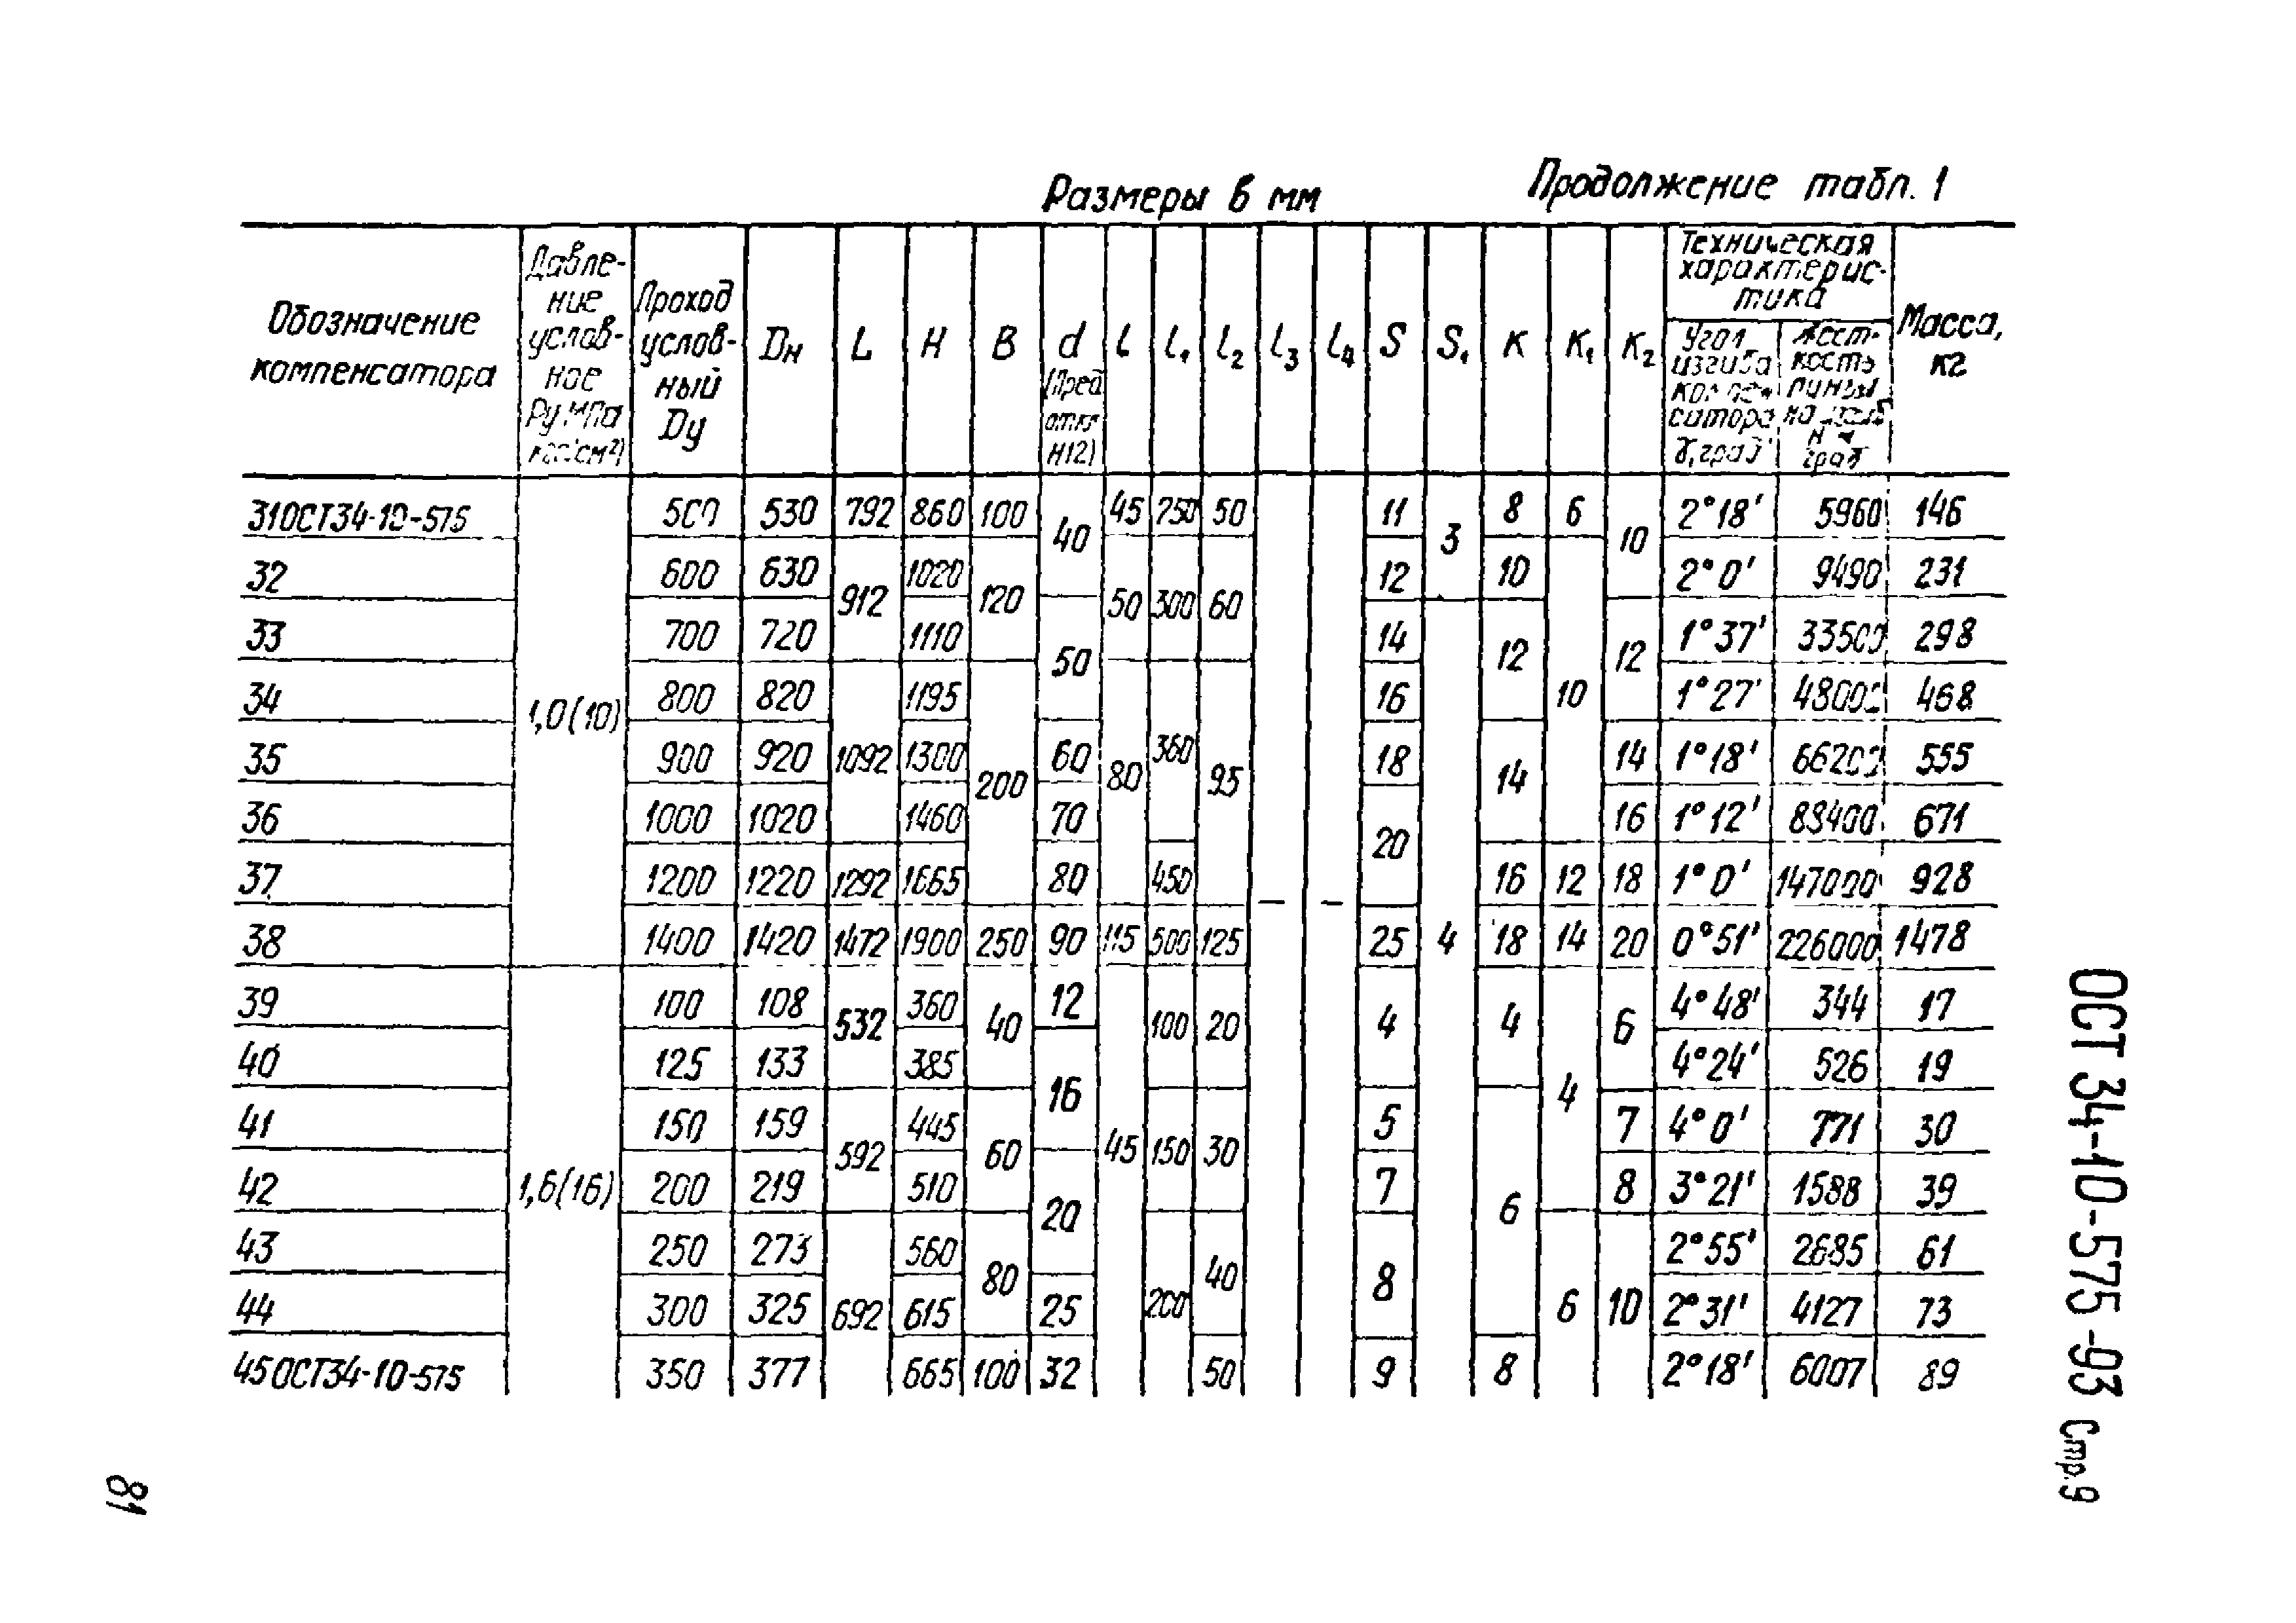 Размеры в мм
Продолжение табл. 1
Обозначение компенсатора
Давле-
ние
услов-
ное
Ру, МПа
кгс/см²)
Проход
услов-
ный
Dу
Dн
L
H
B
d
(пред
откл
H12)
l
l₁
l₂
l₃
l₄
S
S₁
K
K₁
K₂
Техническая
характерис-
тика
Угол
изгиба
компен-
сатора
γ, град
Жест-
кость
линзы
на
град
Масса,
кг
31 ОСТ34-10-575 1,0(10) 500 530 792 860 100 40 45 250 50 – – 11 3 8 6 10 2°18' 5960 146
32 600 630 912 1020 120 50 300 60 12 10 10 2°0' 9490 231
33 700 720 1110 50 14 4 12 12 1°37' 33500 298
34 800 820 1092 1195 200 80 360 95 16 1°27' 48000 468
35 900 920 1300 60 18 14 14 1°18' 66200 555
36 1000 1020 1460 70 20 16 1°12' 88400 671
37 1200 1220 1292 1665 80 450 16 12 18 1°0' 147000 928
38 1400 1420 1472 1900 250 90 115 500 125 25 18 14 20 0°51' 226000 1478
39 1,6(16) 100 108 532 360 40 12 45 100 20 4 4 4 6 4°48' 344 17
40 125 133 385 16 4°24' 526 19
41 150 159 592 445 60 150 30 5 6 7 4°0' 771 30
42 200 219 510 20 7 8 3°21' 1588 39
43 250 273 692 560 80 200 40 8 6 10 2°55' 2685 61
44 300 325 615 25 2°31' 4127 73
45 ОСТ34-10-575 350 377 665 100 32 50 9 8 2°18' 6007 89
ОСТ 34-10-575-93 Стр.9
81